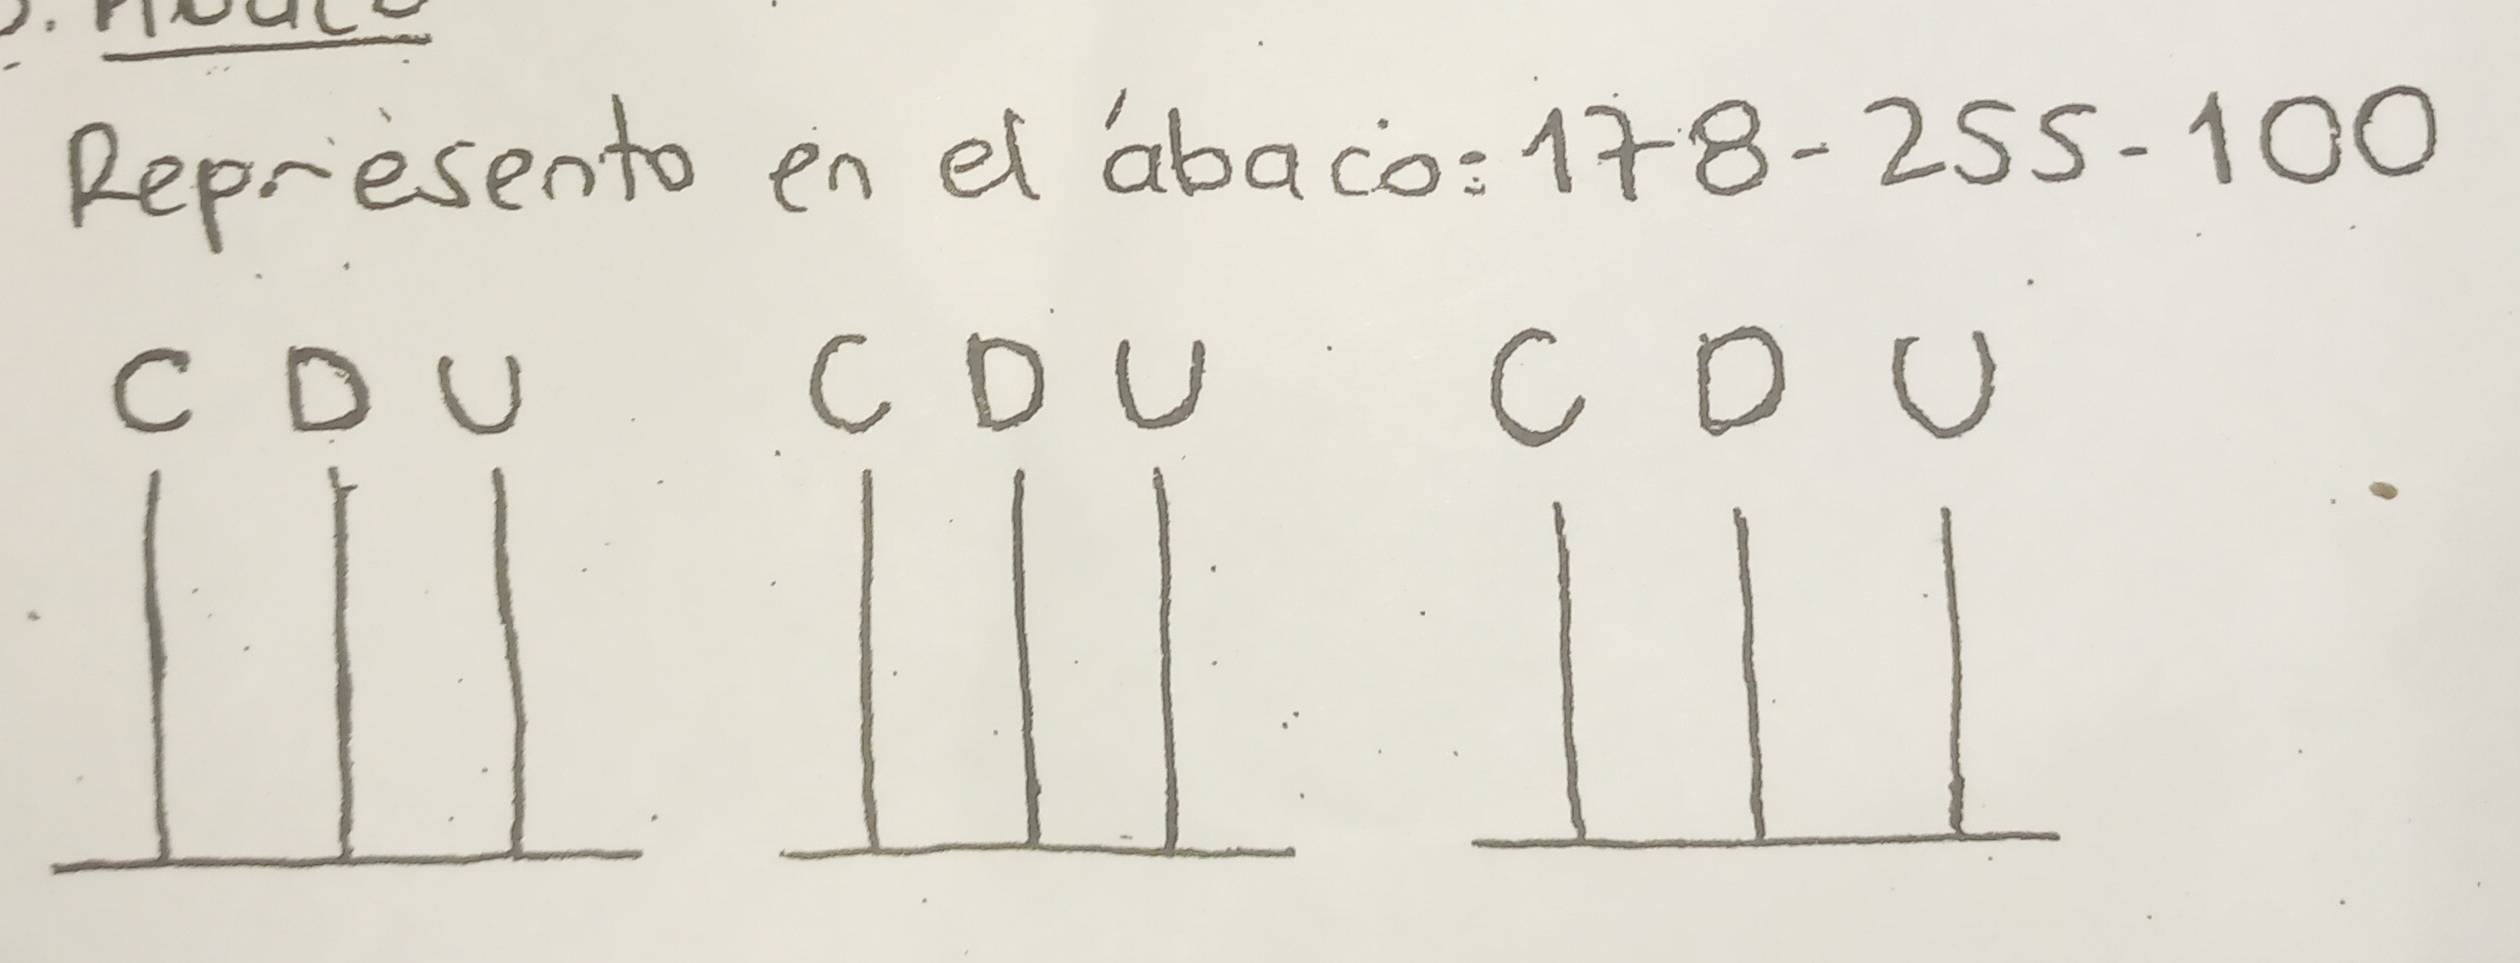 Represento en el ábaco: 178-255-100
C D U C D U C D U